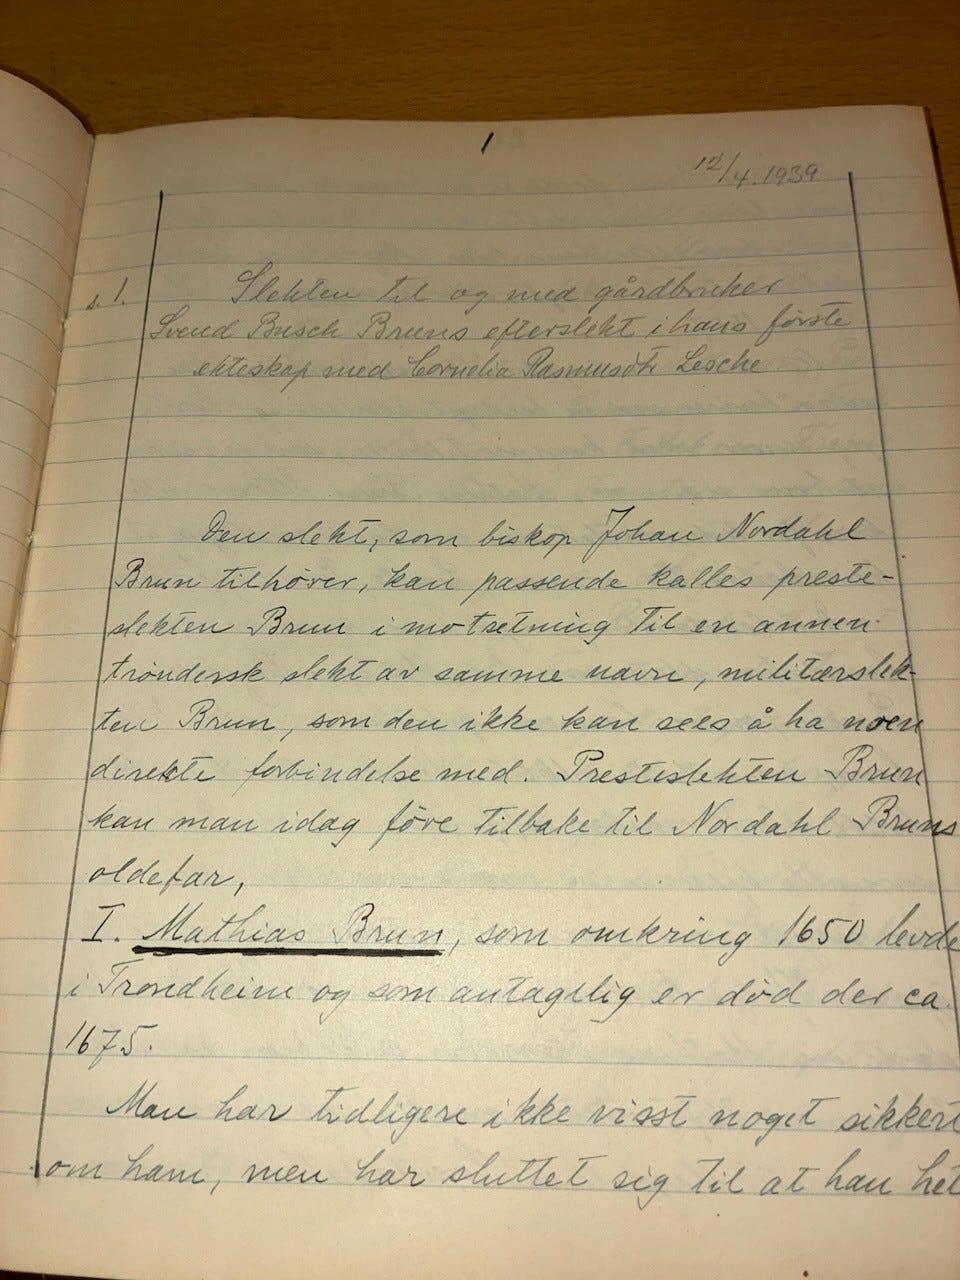 1
12/4.1939
s. 1. Slekten til og med gårdbruker
Svend Busch Bruns efterslekt i hans første
ekteskap med Cornelia Rasmusdtr Lesche
Den slekt, som biskop Johan Nordahl
Brun tilhører, kan passende kalles preste-
slekten Brun i motsetning til en annen
trøndersk slekt av samme navn, militærslek-
ten Brun, som den ikke kan sees å ha noen
direkte forbindelse med. Presteslekten Brun
kan man idag føre tilbake til Nordahl Bruns
oldefar,
I. Mathias Brun, som omkring 1650 levde
i Trondheim og som antagelig er død der ca.
1675.
Man har tidligere ikke visst noget sikkert
om ham, men har sluttet sig til at han het